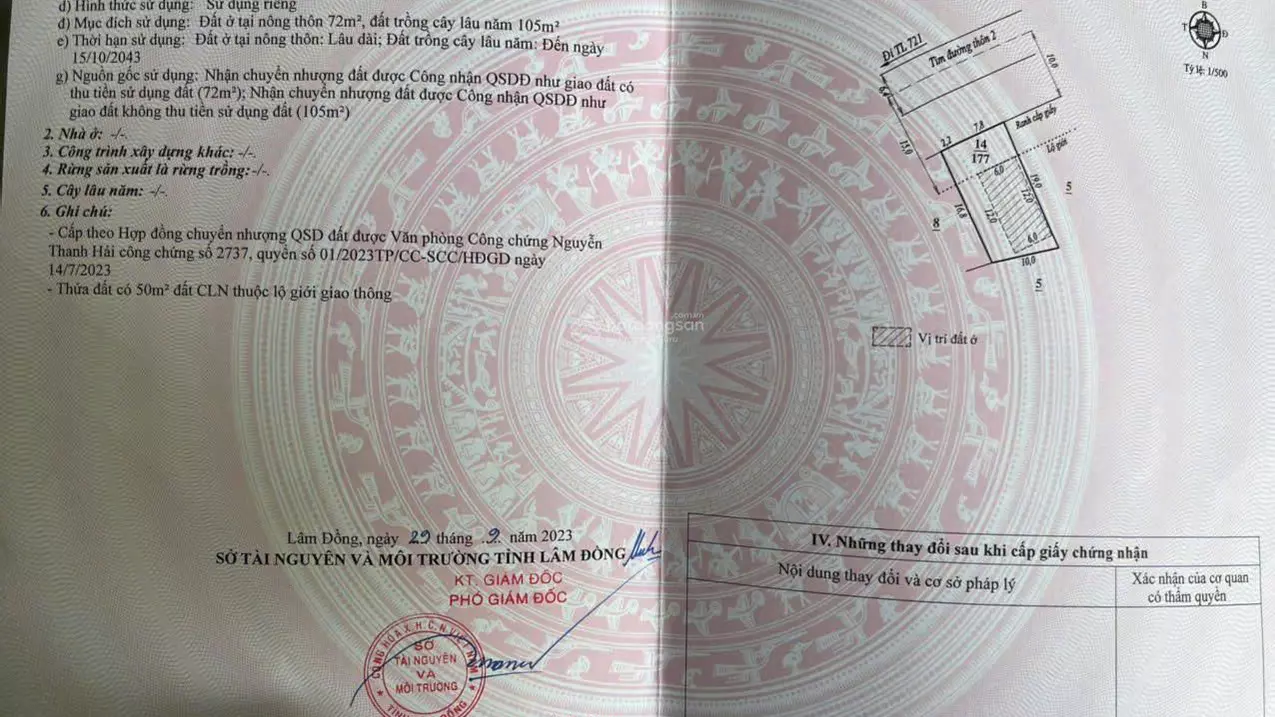 d) Hình thức sử dụng: Sử dụng riêng
đ) Mục đích sử dụng: Đất ở tại nông thôn 72m², đất trồng cây lâu năm 105m²
e) Thời hạn sử dụng: Đất ở tại nông thôn: Lâu dài; Đất trồng cây lâu năm: Đến ngày
15/10/2043
g) Nguồn gốc sử dụng: Nhận chuyển nhượng đất được Công nhận QSDĐ như giao đất có
thu tiền sử dụng đất (72m²); Nhận chuyển nhượng đất được Công nhận QSDĐ như
giao đất không thu tiền sử dụng đất (105m²)
2. Nhà ở: -/-.
3. Công trình xây dựng khác: -/-.
4. Rừng sản xuất là rừng trồng: -/-.
5. Cây lâu năm: -/-.
6. Ghi chú:
- Cấp theo Hợp đồng chuyển nhượng QSD đất được Văn phòng Công chứng Nguyễn
Thanh Hải công chứng số 2737, quyển số 01/2023TP/CC-SCC/HĐGD ngày
14/7/2023
- Thửa đất có 50m² đất CLN thuộc lộ giới giao thông
Lâm Đồng, ngày 29 tháng 9 năm 2023
SỞ TÀI NGUYÊN VÀ MÔI TRƯỜNG TỈNH LÂM ĐỒNG
KT. GIÁM ĐỐC
PHÓ GIÁM ĐỐC
CỘNG HÒA X.H.C.N VIỆT NAM
SỞ
TÀI NGUYÊN
VÀ
MÔI TRƯỜNG
B
T
Đ
N
Tỷ lệ: 1/500
Đi TL 721
Tim đường thôn 2
10,0
6,0
15,0
2,2
7,8
Ranh cấp giấy
Lộ giới
14
177
6,0
19,0
12,0
16,8
12,0
6,0
10,0
8
5
5
Vị trí đất ở
IV. Những thay đổi sau khi cấp giấy chứng nhận
Nội dung thay đổi và cơ sở pháp lý
Xác nhận của cơ quan
có thẩm quyền